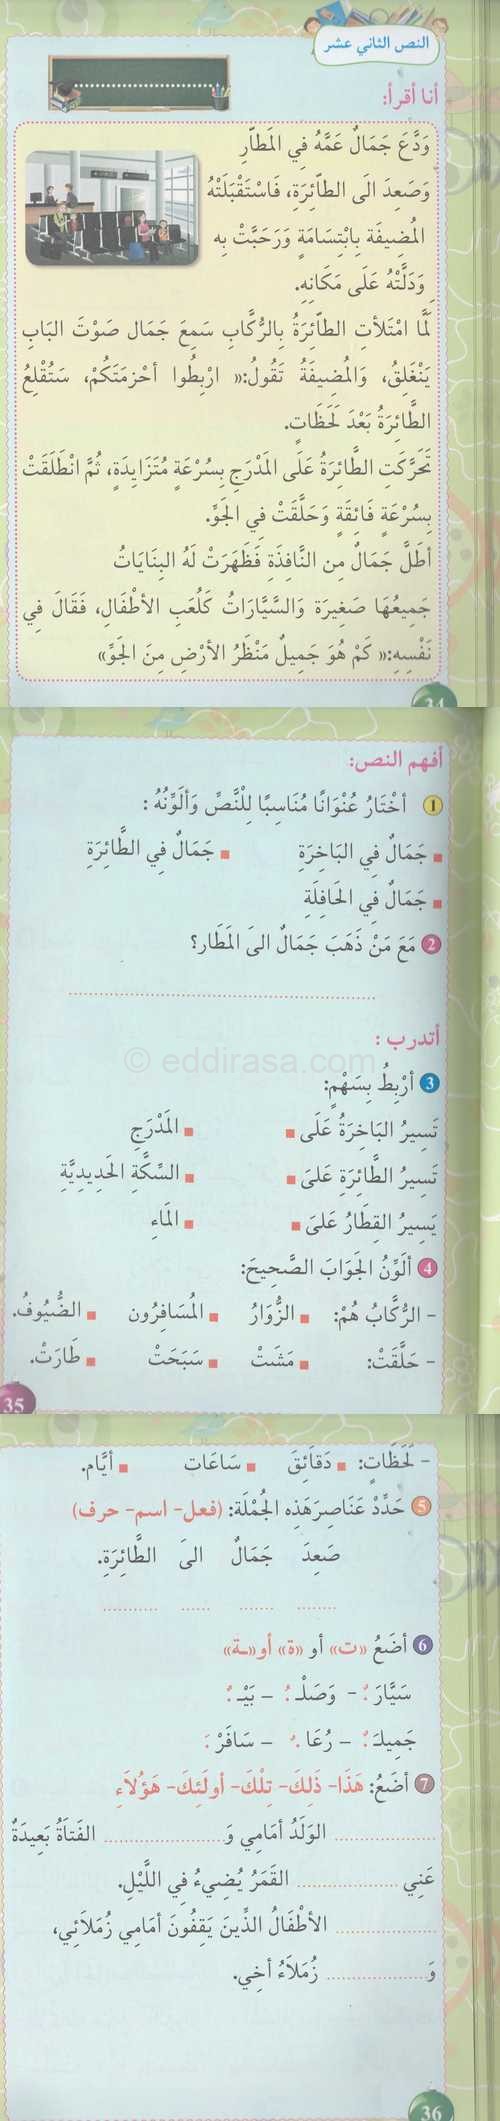 النص الثاني عشر
أنا أقرأ:
وَدَّعَ جَمَالٌ عَمَّهُ فِي المَطَارِ
وَصَعِدَ الَى الطَّائِرَةِ، فَاسْتَقْبَلَتْهُ
المُضِيفَة بِابْتِسَامَةٍ وَرَحَبَّتْ بِه
وَدَلَّتْهُ عَلَى مَكَانِهِ.
لَمَّا امْتَلأتِ الطَّائِرَةُ بِالرُّكَّابِ سَمِعَ جَمَال صَوْتَ البَابِ
يَنْغَلِقُ، وَالمُضِيفَةُ تَقُولُ:« ارْبِطُوا أحْزِمَتَكُمْ، سَتُقْلِعُ
الطَّائِرَةُ بَعْدَ لَحَظَاتٍ.
تَحَرَّكَتِ الطَّائِرَةُ عَلَى المَدْرَجِ بِسُرْعَةٍ مُتَزَايِدَةٍ، ثُمَّ انْطَلَقَتْ
بِسُرْعَةٍ فَائِقَةٍ وَحَلَّقَتْ فِي الجَوِّ.
أطَلَّ جَمَالٌ مِن النَّافِذَةِ فَظَهَرَتْ لَهُ البِنَايَاتُ
جَمِيعُهَا صَغِيرَة وَالسَّيَّارَاتُ كَلُعَبِ الأطْفَالِ، فَقَالَ فِي
نَفْسِهِ:« كَمْ هُوَ جَمِيلٌ مَنْظَرُ الأرْضِ مِنَ الجَوِّ»
34
أفهم النص:
1 أخْتَارُ عُنْوَانًا مُنَاسِبًا لِلْنَّصِّ وَألَوِّنُهُ :
جَمَالٌ فِي البَاخِرَةِ جَمَالٌ فِي الطَّائِرَةِ
جَمَالٌ فِي الحَافِلَةِ
2 مَعَ مَنْ ذَهَبَ جَمَالٌ الىَ المَطَار؟
أتدرب :
© eddirasa.com
3 أرْبِطُ بِسَهْمٍ:
تَسِيرُ البَاخِرَةُ عَلَى المَدْرَجِ
تَسِيرُ الطَّائِرَةِ عَلىَ السِّكَّةِ الحَدِيدِيَّةِ
يَسِيرُ القِطَارُ عَلىَ المَاءِ
4 ألَوِّنُ الجَوَابَ الصَّحِيحَ:
- الرُّكَّابُ هُمْ: الزُّوَارُ المُسَافِرُون الضُّيُوفُ.
- حَلَّقَتْ: مَشَتْ سَبَحَتْ طَارَتْ.
35
- لَحَظَاتٍ: دَقَائِقَ سَاعَات أيَّام.
5 حَدِّدْ عَنَاصِرَ هَذِهِ الجُمْلَة: (فعل- اسم- حرف)
صَعِدَ جَمَالٌ الىَ الطَّائِرَةِ.
6 أضَعُ «ت» أو «ة» أو «ـة»
سَيَّارَ - وَصَلْـ - بَيْـ
جَمِيلَـ - رُعَا - سَافَرْ
7 أضَعُ: هَذَا- ذَلِكَ- تِلْكَ- أولَئِكَ- هَؤُلاَءِ
الوَلَدُ أمَامِي وَ الفَتاَةُ بَعِيدَةٌ
عَنِي القَمَرُ يُضِيءُ فِي اللَّيْلِ.
الأطْفَالُ الذِّينَ يَقِفُونَ أمَامِي زُمَلاَئِي،
وَ زُمَلاَءُ أخِي.
36